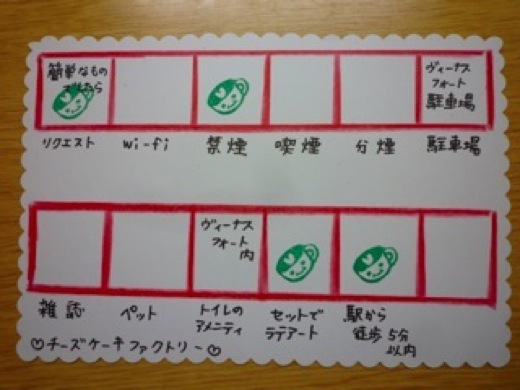 簡単なもの
でしたら
ヴィーナス
フォート
駐車場
リクエスト
wi-fi
禁煙
喫煙
分煙
駐車場
ヴィーナス
フォート
内
雑誌
ペット
トイレの
アメニティ
セットで
ラテアート
駅から
徒歩5分
以内
♡チーズケーキファクトリー♡